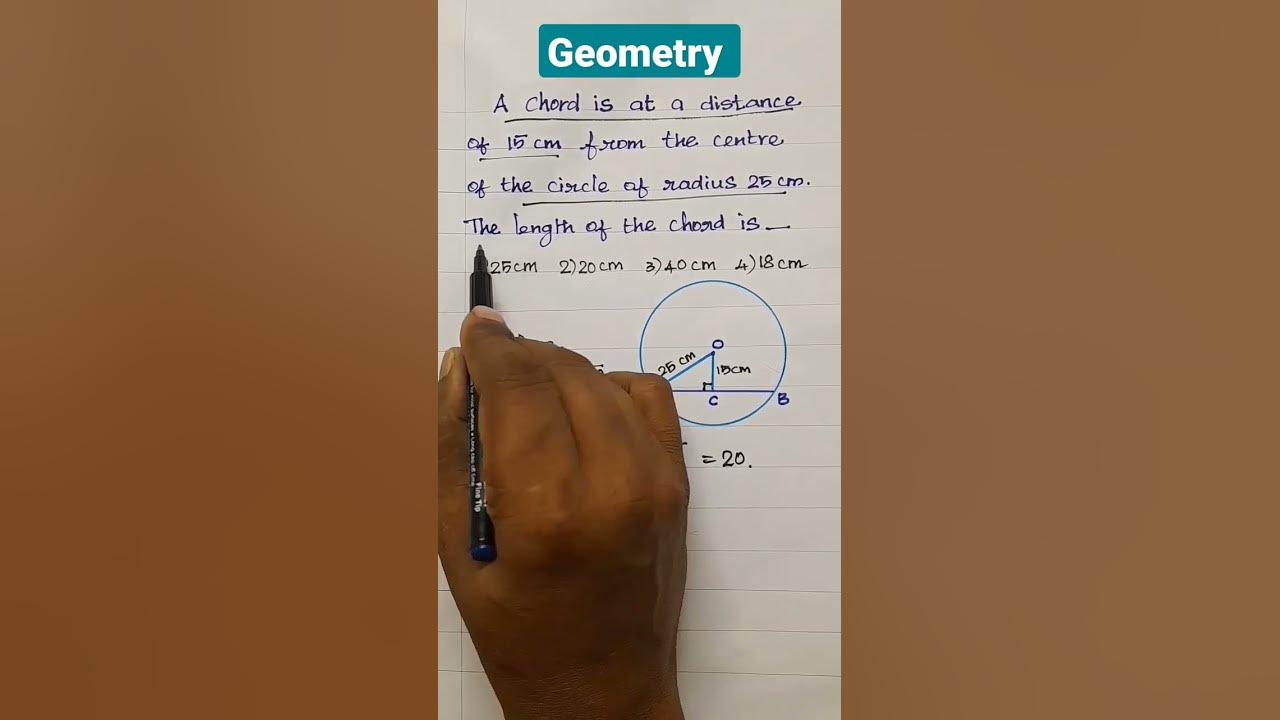 Geometry
A chord is at a distance
of 15 cm from the centre
of the circle of radius 25 cm.
The length of the chord is —
25cm 2) 20 cm 3) 40 cm 4) 18 cm
O
25 cm
15cm
C B
= 20.
Fine Tip